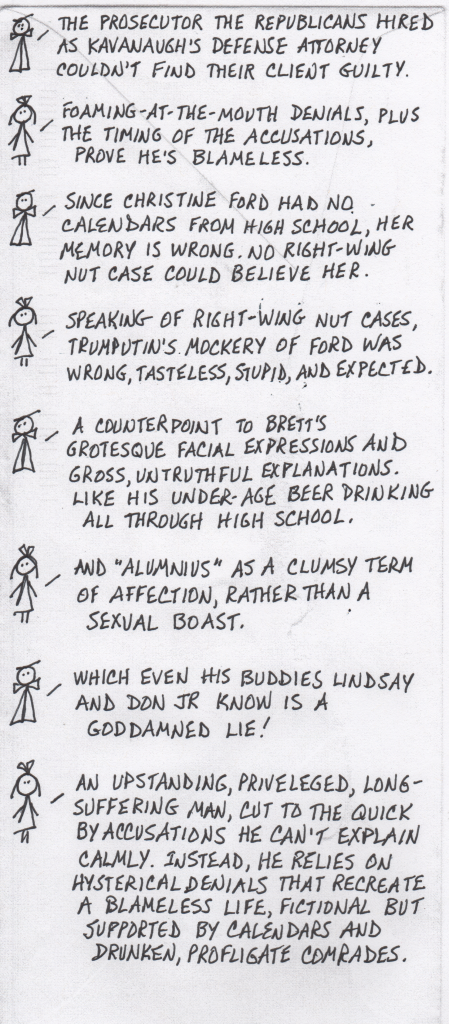 THE PROSECUTOR THE REPUBLICANS HIRED
AS KAVANAUGH'S DEFENSE ATTORNEY
COULDN'T FIND THEIR CLIENT GUILTY.
FOAMING-AT-THE-MOUTH DENIALS, PLUS
THE TIMING OF THE ACCUSATIONS,
PROVE HE'S BLAMELESS.
SINCE CHRISTINE FORD HAD NO
CALENDARS FROM HIGH SCHOOL, HER
MEMORY IS WRONG. NO RIGHT-WING
NUT CASE COULD BELIEVE HER.
SPEAKING OF RIGHT-WING NUT CASES,
TRUMPUTIN'S MOCKERY OF FORD WAS
WRONG, TASTELESS, STUPID, AND EXPECTED.
A COUNTERPOINT TO BRETT'S
GROTESQUE FACIAL EXPRESSIONS AND
GROSS, UNTRUTHFUL EXPLANATIONS.
LIKE HIS UNDER-AGE BEER DRINKING
ALL THROUGH HIGH SCHOOL.
AND "ALUMNIUS" AS A CLUMSY TERM
OF AFFECTION, RATHER THAN A
SEXUAL BOAST.
WHICH EVEN HIS BUDDIES LINDSAY
AND DON JR KNOW IS A
GODDAMNED LIE!
AN UPSTANDING, PRIVELEGED, LONG-
SUFFERING MAN, CUT TO THE QUICK
BY ACCUSATIONS HE CAN'T EXPLAIN
CALMLY. INSTEAD, HE RELIES ON
HYSTERICAL DENIALS THAT RECREATE
A BLAMELESS LIFE, FICTIONAL BUT
SUPPORTED BY CALENDARS AND
DRUNKEN, PROFLIGATE COMRADES.